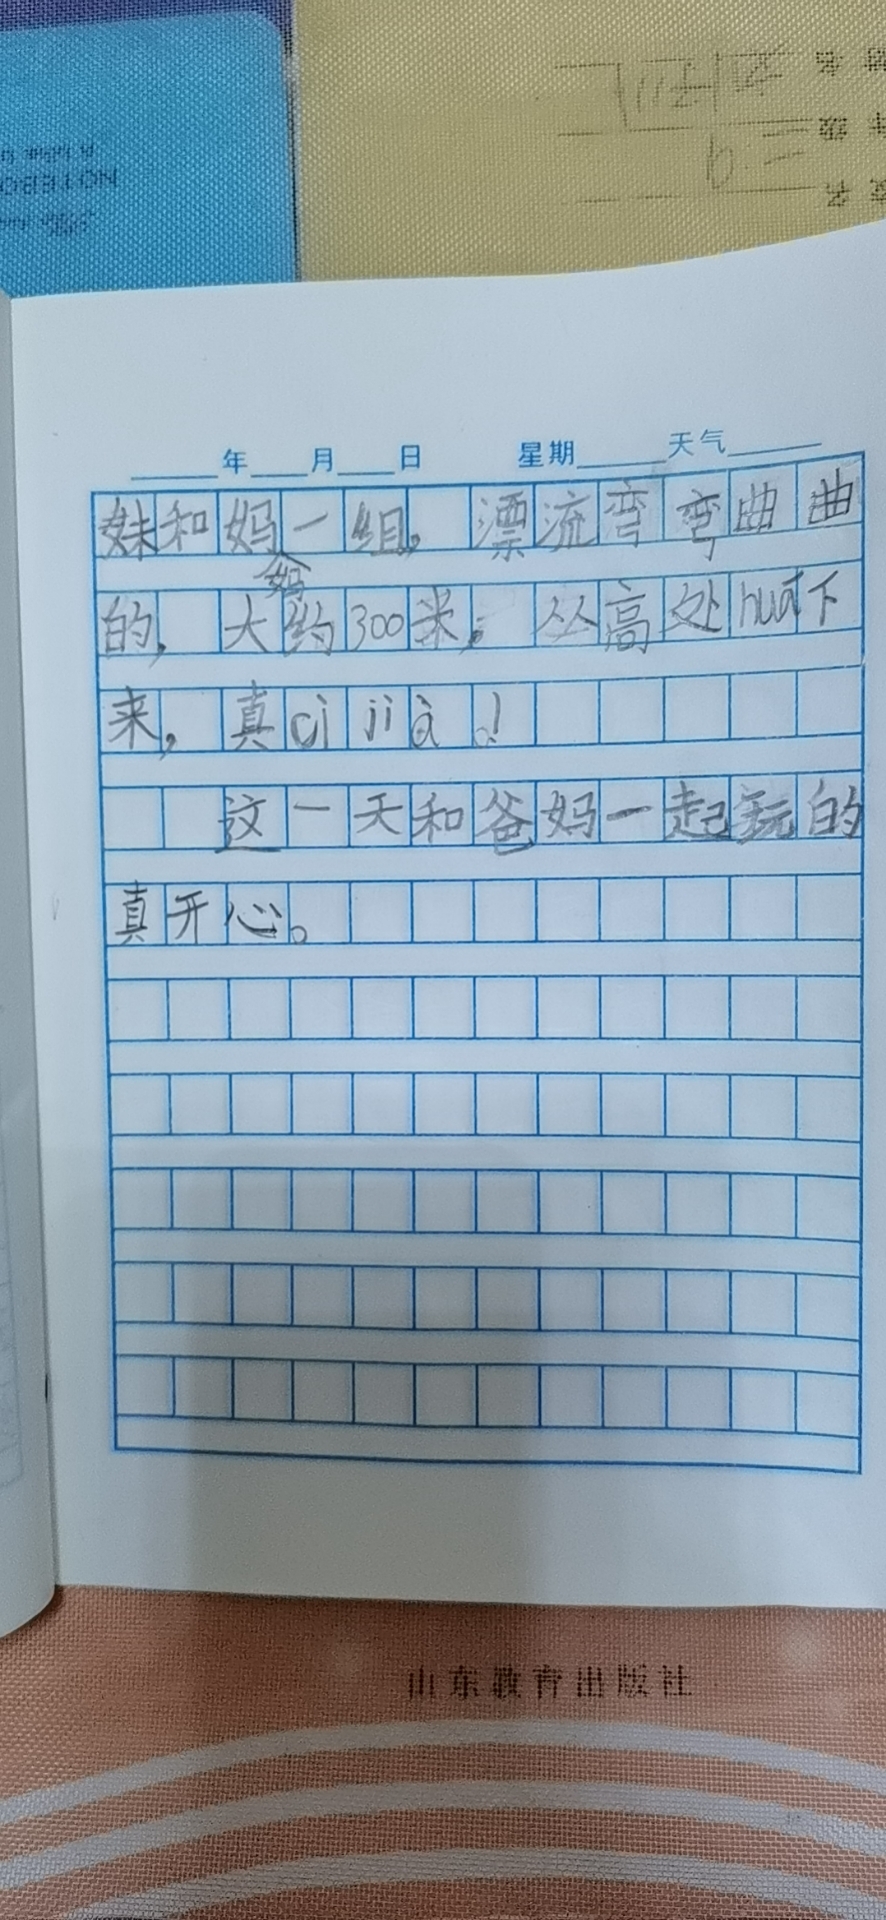 年 月 日 星期 天气
妹和妈妈一组，漂流弯弯曲曲
的，大约300米，丛高处huá下
来，真cì jī à！
这一天和爸妈一起玩的
真开心。
山东教育出版社